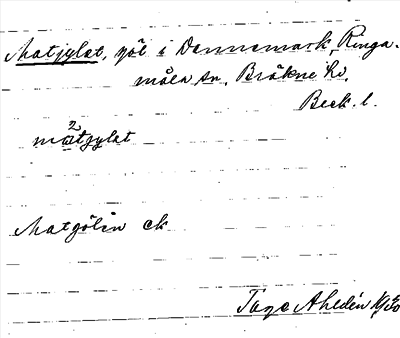 Matjylst, göl i Dannemark, Ringa-
måla sn, Bräkne hd,
Blek. l.
ma²tjylst
Matgölin ek
Tage Ahldén 1930